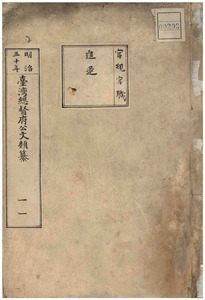 官規官職
進退
明治
三十年
臺灣總督府公文類纂
一一